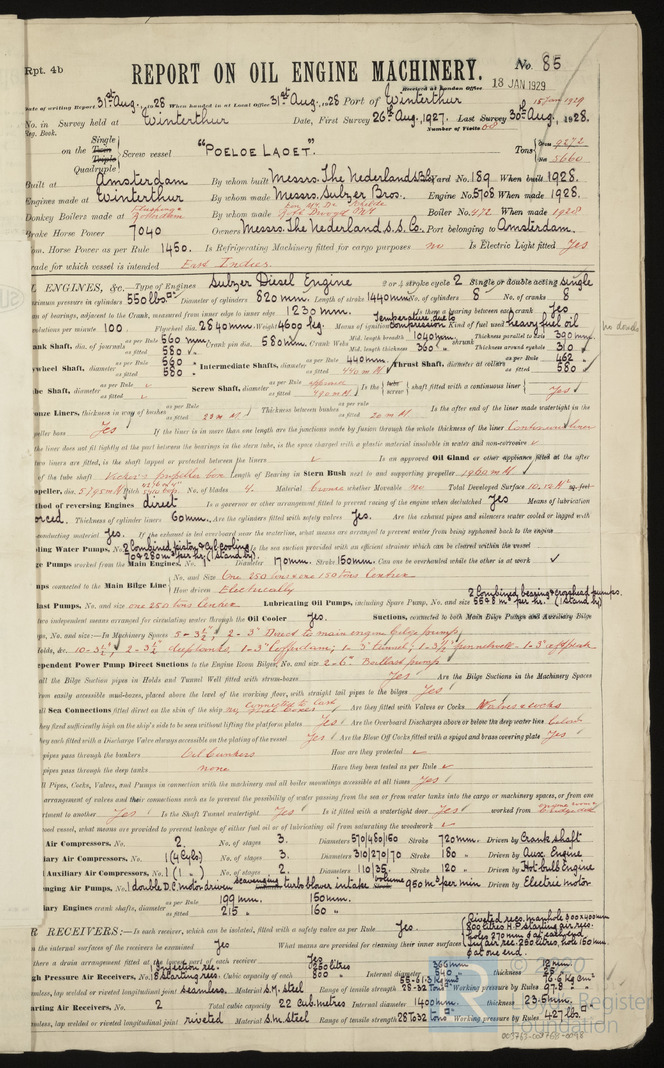 Rpt. 4b
REPORT ON OIL ENGINE MACHINERY.
No. 85
Received at London Office
18 JAN 1929
Date of writing Report 31st Aug., 1928 When handed in at Local Office 31st Aug., 1928 Port of Winterthur
No. in Survey held at Winterthur Date, First Survey 26th Aug. 1927. Last Survey 30th Aug., 1928.
Reg. Book. Number of Visits 60
on the Single Twin Triple Quadruple Screw vessel "POELOE LAOET". Tons Gross 9272 Net 5660
Built at Amsterdam By whom built Messrs. The Nederland S.B.Co Yard No. 189 When built 1928.
Engines made at Winterthur By whom made Messrs. Sulzer Bros. Engine No. 5708 When made 1928.
Donkey Boilers made at Rotterdam By whom made Boiler No. 472 When made 1928
Brake Horse Power 7040 Owners Messrs. The Nederland S.S. Co. Port belonging to Amsterdam.
Nom. Horse Power as per Rule 1450. Is Refrigerating Machinery fitted for cargo purposes no Is Electric Light fitted Yes
Trade for which vessel is intended East Indies
ENGINES, &c.— Type of Engines Sulzer Diesel Engine 2 or 4 stroke cycle 2 Single or double acting single
Maximum pressure in cylinders 550 lbs □" Diameter of cylinders 820 mm. Length of stroke 1440 mm No. of cylinders 8 No. of cranks 8
Span of bearings, adjacent to the Crank, measured from inner edge to inner edge 1230 mm. Is there a bearing between each crank Yes
Revolutions per minute 100 Flywheel dia. 2840 mm. Weight 4600 kg. Means of ignition Temperature due to compression Kind of fuel used heavy fuel oil
Crank Shaft, dia. of journals as per Rule 560 mm as fitted 580 Crank pin dia. 580 mm. Crank Webs Mid. length breadth 1040 mm. Mid. length thickness 360 shrunk Thickness parallel to axis 390 mm. Thickness around eyehole 310
Flywheel Shaft, diameter as per Rule 560 as fitted 580 Intermediate Shafts, diameter as per Rule 440 mm. as fitted 440 m/m Thrust Shaft, diameter at collars as per Rule 462 as fitted 580
Tube Shaft, diameter as per Rule ✓ as fitted ✓ Screw Shaft, diameter as per Rule approved as fitted 490 m/m Is the tube screw shaft fitted with a continuous liner Yes
Bronze Liners, thickness in way of bushes as per Rule as fitted 23 m/m Thickness between bushes as per rule as fitted 20 m/m Is the after end of the liner made watertight in the
propeller boss Yes If the liner is in more than one length are the junctions made by fusion through the whole thickness of the liner Continuous liner
If the liner does not fit tightly at the part between the bearings in the stern tube, is the space charged with a plastic material insoluble in water and non-corrosive ✓
If two liners are fitted, is the shaft lapped or protected between the liners ✓ Is an approved Oil Gland or other appliance fitted at the after
end of the tube shaft Length of Bearing in Stern Bush next to and supporting propeller 1960 m/m
Propeller, dia. 5795 m/m No. of blades 4. Material bronze whether Moveable no Total Developed Surface sq. feet
Method of reversing Engines direct Is a governor or other arrangement fitted to prevent racing of the engine when declutched Yes Means of lubrication
forced. Thickness of cylinder liners 60 mm. Are the cylinders fitted with safety valves Yes. Are the exhaust pipes and silencers water cooled or lagged with
non-conducting material Yes. If the exhaust is led overboard near the waterline, what means are arranged to prevent water from being syphoned back to the engine
Cooling Water Pumps, No. 2 Combined piston & cyl. cooling 700 & 280 m³ per hr. (1 stand by) Is the sea suction provided with an efficient strainer which can be cleared within the vessel
Bilge Pumps worked from the Main Engines, No. Diameter 170 mm. Stroke 150 mm. Can one be overhauled while the other is at work ✓
Pumps connected to the Main Bilge Line No. and Size One 250 tons & one 150 tons Centrif. How driven Electrically
Ballast Pumps, No. and size one 250 tons Centrif. Lubricating Oil Pumps, including Spare Pump, No. and size 2 Combined bearing & crosshead pumps. 55 & 8 m³ per hr. (1 Stand by)
Are two independent means arranged for circulating water through the Oil Cooler Yes. Suctions, connected to both Main Bilge Pumps and Auxiliary Bilge
Pumps, No. and size:— In Machinery Spaces 5 - 3½", 2 - 3" Direct to main engine bilge pumps
Holds, &c. 10 - 3½", 2 - 3½" deeptanks, 1 - 3" Cofferdam, 1 - 3" tunnel, 1 - 3½" tunnelwell, 1 - 3" aftpeak
Independent Power Pump Direct Suctions to the Engine Room Bilges, No. and size 2 - 6" Ballast pump
Are all the Bilge Suction pipes in Holds and Tunnel Well fitted with strum-boxes Yes Are the Bilge Suctions in the Machinery Spaces
from easily accessible mud-boxes, placed above the level of the working floor, with straight tail pipes to the bilges Yes
Are all Sea Connections fitted direct on the skin of the ship Are they fitted with Valves or Cocks Valves & cocks
Are they fixed sufficiently high on the ship's side to be seen without lifting the platform plates Yes Are the Overboard Discharges above or below the deep water line below
Are they each fitted with a Discharge Valve always accessible on the plating of the vessel Yes Are the Blow Off Cocks fitted with a spigot and brass covering plate Yes
What pipes pass through the bunkers Oil bunkers How are they protected ✓
What pipes pass through the deep tanks none Have they been tested as per Rule ✓
Are all Pipes, Cocks, Valves, and Pumps in connection with the machinery and all boiler mountings accessible at all times Yes
Is the arrangement of valves and their connections such as to prevent the possibility of water passing from the sea or from water tanks into the cargo or machinery spaces, or from one
compartment to another Yes Is the Shaft Tunnel watertight Yes Is it fitted with a watertight door Yes worked from
If a wood vessel, what means are provided to prevent leakage of either fuel oil or of lubricating oil from saturating the woodwork ✓
Main Air Compressors, No. 2. No. of stages 3. Diameters 570/480/150 Stroke 720 mm. Driven by Crank shaft
Auxiliary Air Compressors, No. 1 (4 Cyls) No. of stages 3. Diameters 310/270/70 Stroke 180 Driven by Aux. Engine
Small Auxiliary Air Compressors, No. 1 (1 ") No. of stages 2. Diameters 110/35. Stroke 120 Driven by Hot bulb Engine
Scavenging Air Pumps, No. 1 double D.C. motor driven scavenging turbo blower intake volume 950 m³ per min Driven by Electric motor
Auxiliary Engines crank shafts, diameter as per Rule 199 mm. 150 mm. as fitted 215 160
AIR RECEIVERS:— Is each receiver, which can be isolated, fitted with a safety valve as per Rule Yes.
Riveted recs. manhole 300x400 mm
800 litres H.P. starting air recs.
holes 270 mm ϕ at each end
Inj. air rec. 250 litres, hole 150 mm.
ϕ at one end.
Can the internal surfaces of the receivers be examined Yes What means are provided for cleaning their inner surfaces
Is there a drain arrangement fitted at the lowest part of each receiver Yes
High Pressure Air Receivers, No. 1 Injection rec. 18 starting recs. Cubic capacity of each 250 litres 800 Internal diameter 366 mm 540 thickness 12 mm. 25
Seamless, lap welded or riveted longitudinal joint seamless. Material S.M. steel Range of tensile strength 28-32 tons □" Working pressure by Rules 97.8
Starting Air Receivers, No. 2 Total cubic capacity 22 cub. metres Internal diameter 1400 mm. thickness 23.5 mm.
Seamless, lap welded or riveted longitudinal joint riveted Material S.M. Steel Range of tensile strength 28 to 32 tons Working pressure by Rules 427 lbs □"
Lloyd's Register
Foundation
009763-009768-0098